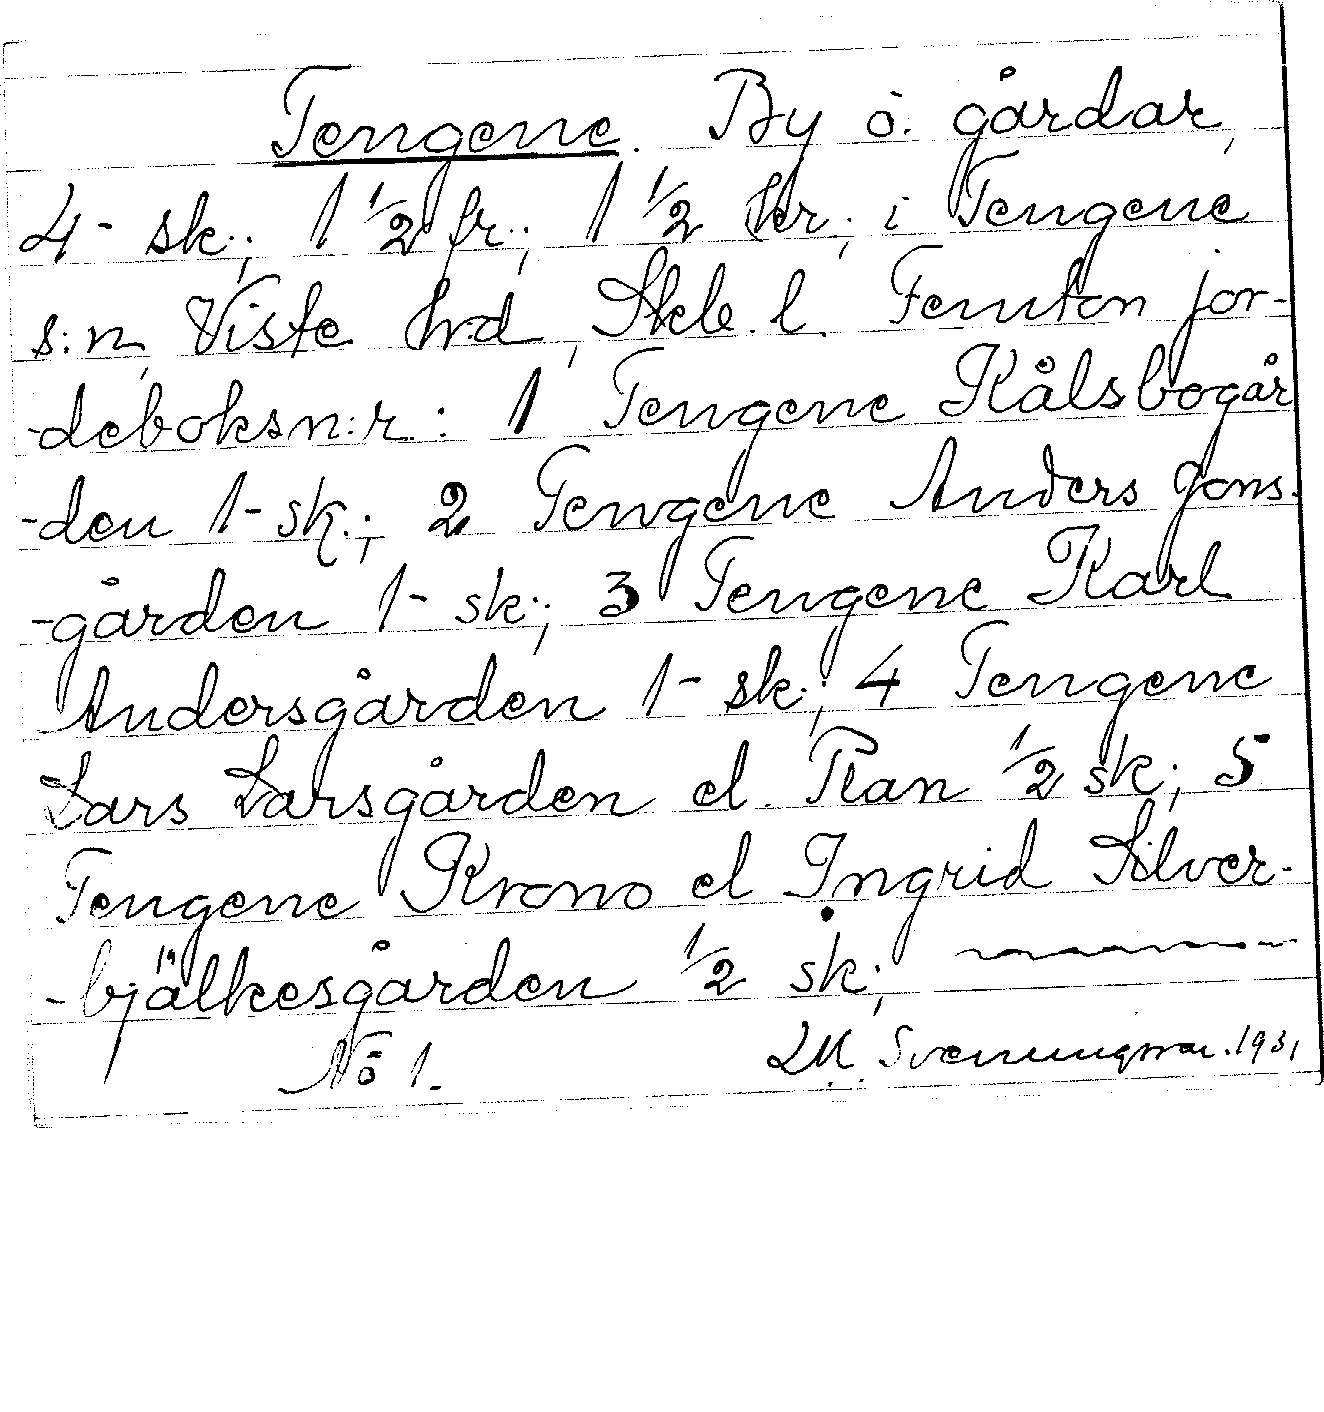 Tengene. By o. gårdar,
4- sk.; 1 1/2 fr.; 1 1/2 kr.; i Tengene
s:n, Viste hrd, Skb. l. Femton jor-
-deboksn:r.: 1 Tengene Kålsbogår
-den 1- sk.; 2 Tengene Anders Jons-
-gården 1- sk.; 3 Tengene Karl
Andersgården 1- sk.; 4 Tengene
Lars Larsgården el. Ran 1/2 sk.; 5
Tengene Krono el Ingrid Silver-
-bjälkesgården 1/2 sk.;
No 1. L.M. Svenungsson. 1931